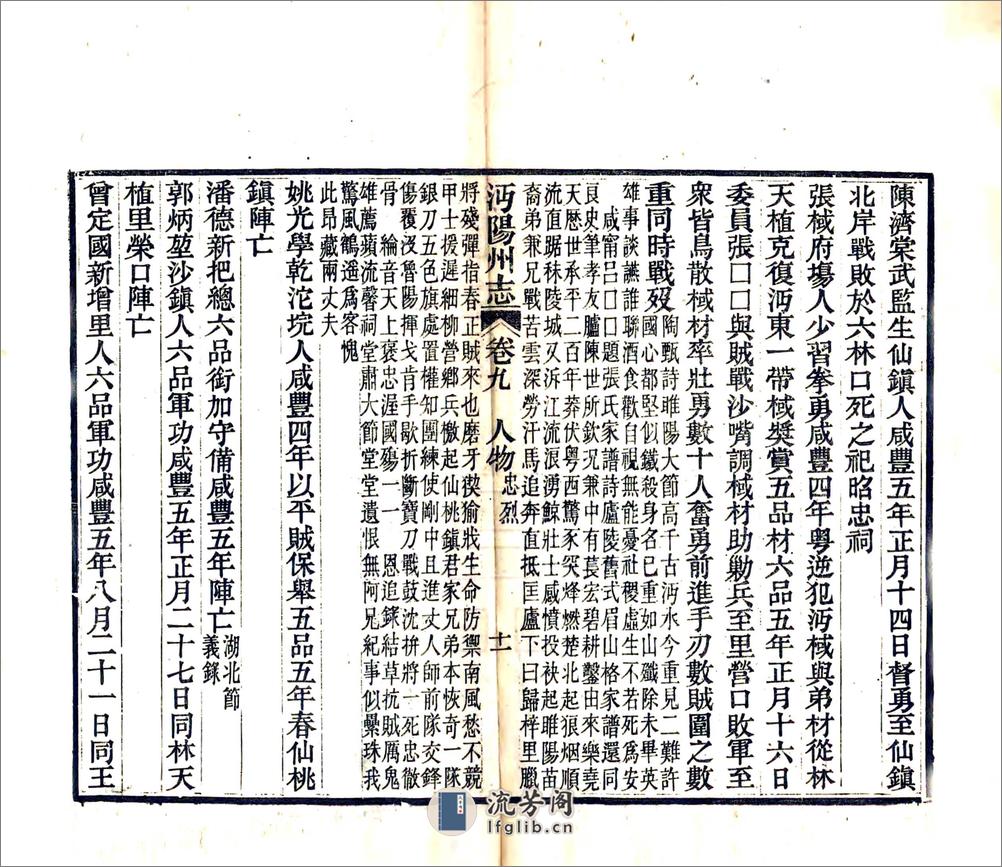 陳濟棠武監生仙鎮人咸豐五年正月十四日督勇至仙鎮
北岸戰敗於六林口死之祀昭忠祠
張棫府塲人少習拳勇咸豐四年粤逆犯沔棫與弟材從林
天植克復沔東一帶棫奬賞五品材六品五年正月十六日
委員張口口與賊戰沙嘴調棫材助勦兵至里營口敗軍至
衆皆鳥散棫材率壯勇數十人奮勇前進手刃數賊圍之數
重同時戰歿
陶甄詩睢陽大節高千古沔水今重見二難許
國心都堅似鐵殺身名已重如山殲除未畢英
雄事談讌誰聯酒食歡自視無能憂社稷虛生不若死爲安
咸甯呂口口題張氏家譜詩廬陵舊式眉山格家譜還同
良史筆孝友臚陳世所欽况兼中有萇宏碧耕鑿由來樂堯
天歷世承平二百年莽伏粤西驚豕突烽燃楚北起狼烟順
流直踞秣陵城又泝江流浪湧鯨壯士感憤投袂起睢陽苗
裔弟兼兄戰苦雲深勞汗馬追奔直抵匡廬下曰歸梓里臘
沔陽州志 卷九 人物 忠烈 十一
將殘彈指春正賊來也磨牙猰㺄戕生命防禦南風愁不競
甲士援遲細柳營鄉兵檄起仙桃鎮君家兄弟本恢奇一隊
銀刀五色旗處置權知團練使剛中且進丈人師前隊交鋒
傷覆沒魯陽揮戈肯手歇折斷寶刀戰鼓沈拚將一死忠徹
骨 綸音天上褒忠渥國殤一一 恩追錄結草抗賊厲鬼
雄薦蘋流馨祠堂肅大節堂堂遺恨無阿兄紀事似纍珠我
驚風鶴遥爲客愧
此昂藏兩丈夫
姚光學乾沱垸人咸豐四年以平賊保舉五品五年春仙桃
鎮陣亡
潘德新把總六品銜加守備咸豐五年陣亡 湖北節
義錄
郭炳堃沙鎮人六品軍功咸豐五年正月二十七日同林天
植里榮口陣亡
曾定國新增里人六品軍功咸豐五年八月二十一日同王
流芳阁
lfglib.cn